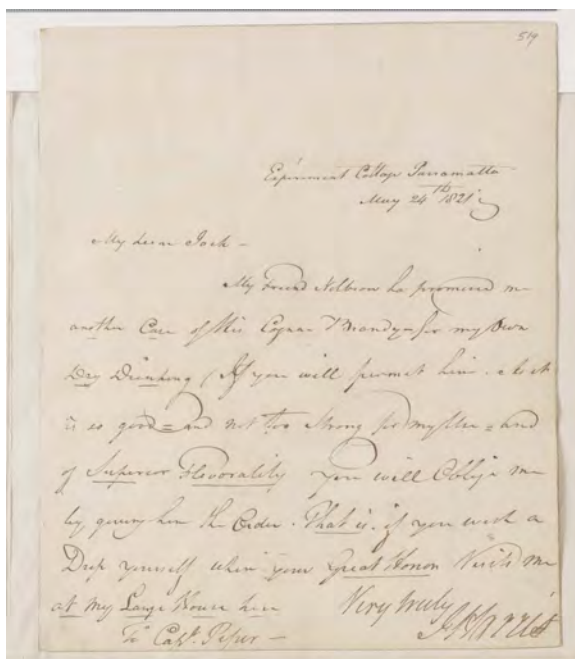 519
Experiment Cottage Parramatta
May 24th 1821
My dear Jack -
My Friend has promised me
another Case of this Cognac Brandy - for my own
Dry Drinking / If you will permit him. As it
is so good - and not too Strong for my - and
of Superior Flavorality you will Oblige me
by giving him the Order. That is. if you wish a
Drop yourself when your Great Honor Visits me
at My Large House here Very truly
To Capt. Piper - J Harris